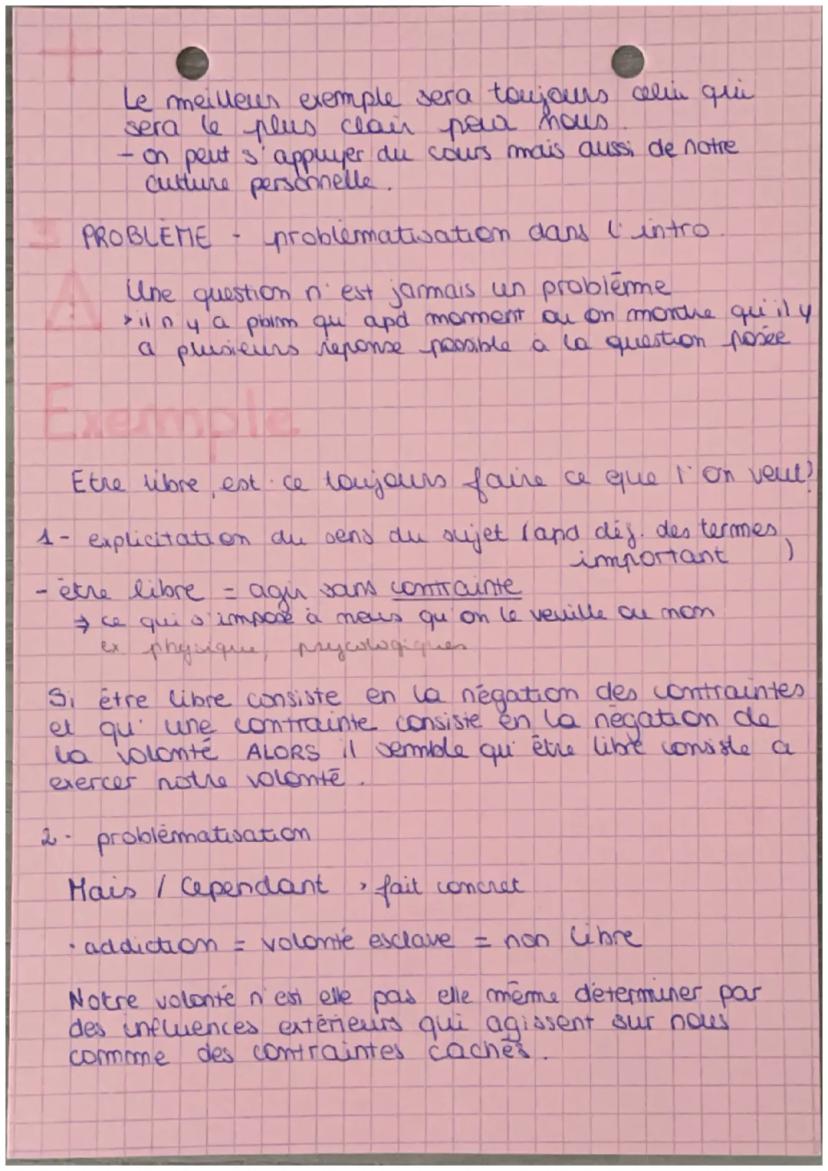 Le meilleur exemple sera toujours celui qui
sera le plus clair pour nous.
- on peut s'appuyer du cours mais aussi de notre
culture personnelle.
PROBLÈME - problématisation dans l'intro.
Une question n'est jamais un problème
il n y a pbm qu' apd moment ou on montre qu'il y
a plusieurs reponse possible à la question posée
Exemple
Etre libre, est ce toujours faire ce que l'on veut?
1- explicitation du sens du sujet (apd déf. des termes
important )
- être libre = agir sans contrainte
→ ce qui s'impose à nous qu'on le veuille ou non
ex physique, psycologiques
Si être libre consiste en la négation des contraintes
et qu' une contrainte consiste en la négation de
la volonté ALORS il semble qu' être libre consiste a
exercer notre volonté.
2- problématisation
Mais / Cependant > fait concret
• addiction = volonté esclave = non libre
Notre volonté n'est elle pas elle même déterminer par
des influences extérieurs qui agissent sur nous
comme des contraintes cachés.